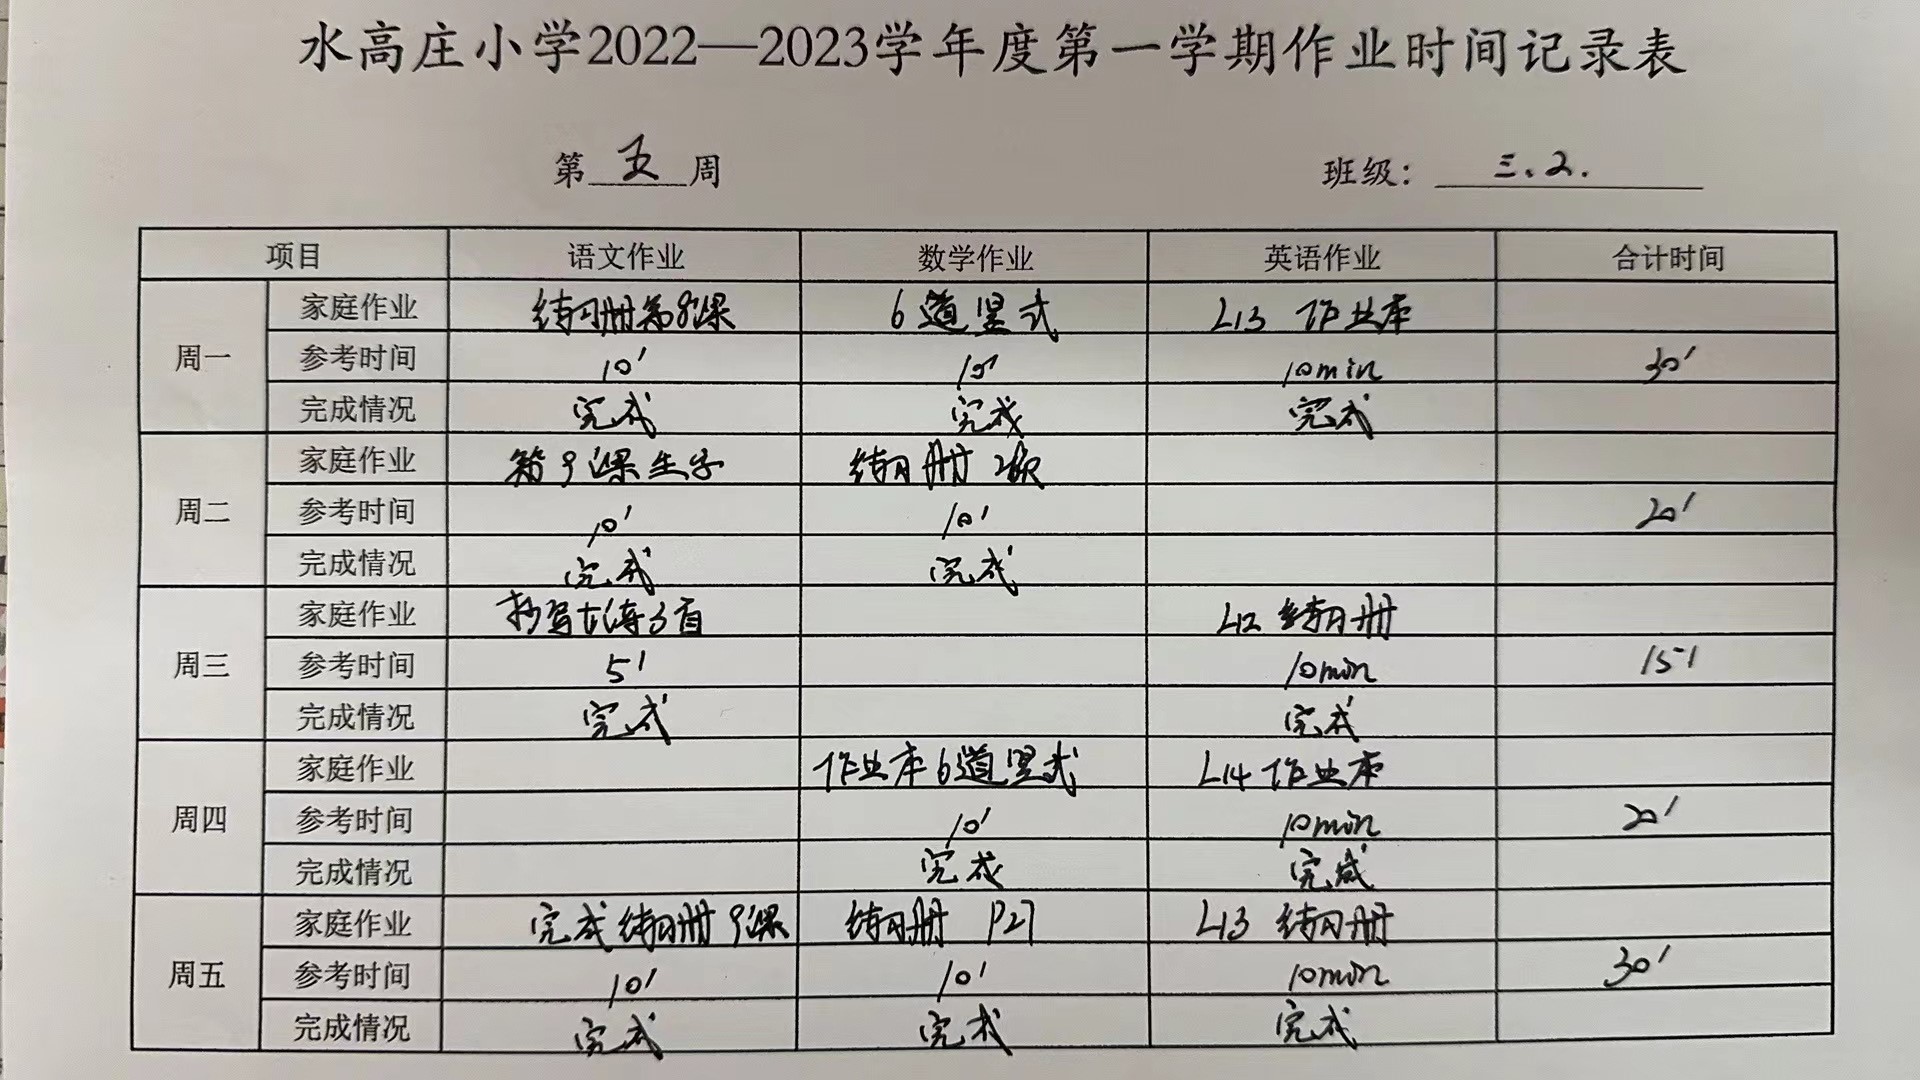 水高庄小学2022—2023学年度第一学期作业时间记录表
第 五 周 班级: 三.2.
项目 语文作业 数学作业 英语作业 合计时间
周一
家庭作业 练习册第8课 6道竖式 L13 作业本
参考时间 10' 10' 10min 30'
完成情况 完成 完成 完成
周二
家庭作业 第9课生字 练习册
参考时间 10' 10' 20'
完成情况 完成 完成
周三
家庭作业 抄写古诗3首 L12 练习册
参考时间 5' 10min 15'
完成情况 完成 完成
周四
家庭作业 作业本6道竖式 L14 作业本
参考时间 10' 10min 20'
完成情况 完成 完成
周五
家庭作业 完成练习册9课 练习册 P27 L13 练习册
参考时间 10' 10' 10min 30'
完成情况 完成 完成 完成